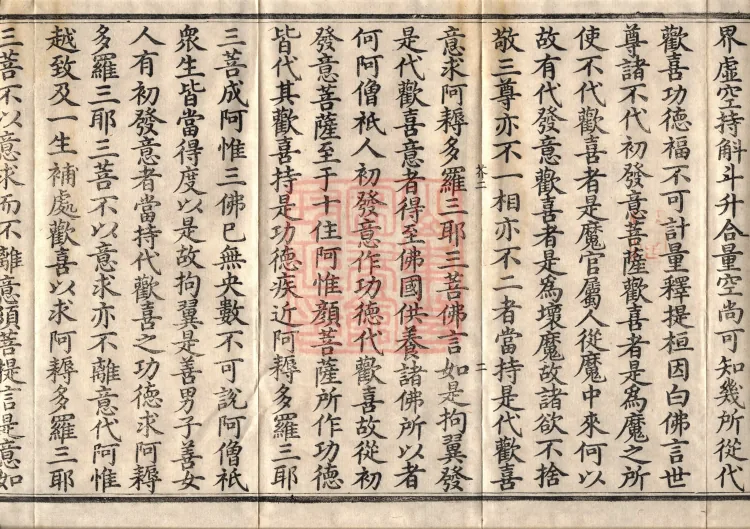 界虛空持斛斗升合量空尚可知幾所從代
歡喜功德福不可計量釋提桓因白佛言世
尊諸不代初發意菩薩歡喜者是為魔之所
使不代歡喜者是魔官屬人從魔中來何以
故有代發意歡喜者是為壞魔故諸欲不捨
敬三尊亦不一相亦不二者當持是代歡喜
意求阿耨多羅三耶三菩佛言如是拘翼發
是代歡喜意者得至佛國供養諸佛所以者
何阿僧祇人初發意作功德代歡喜故從初
發意菩薩至于十住阿惟顏菩薩所作功德
皆代其歡喜持是功德疾近阿耨多羅三耶
三菩成阿惟三佛已無央數不可說阿僧祇
衆生皆當得度以是故拘翼是善男子善女
人有初發意者當持代歡喜之功德求阿耨
多羅三耶三菩不以意求亦不離意代阿惟
越致及一生補處歡喜以求阿耨多羅三耶
三菩不以意求而不離意須菩提言是意如